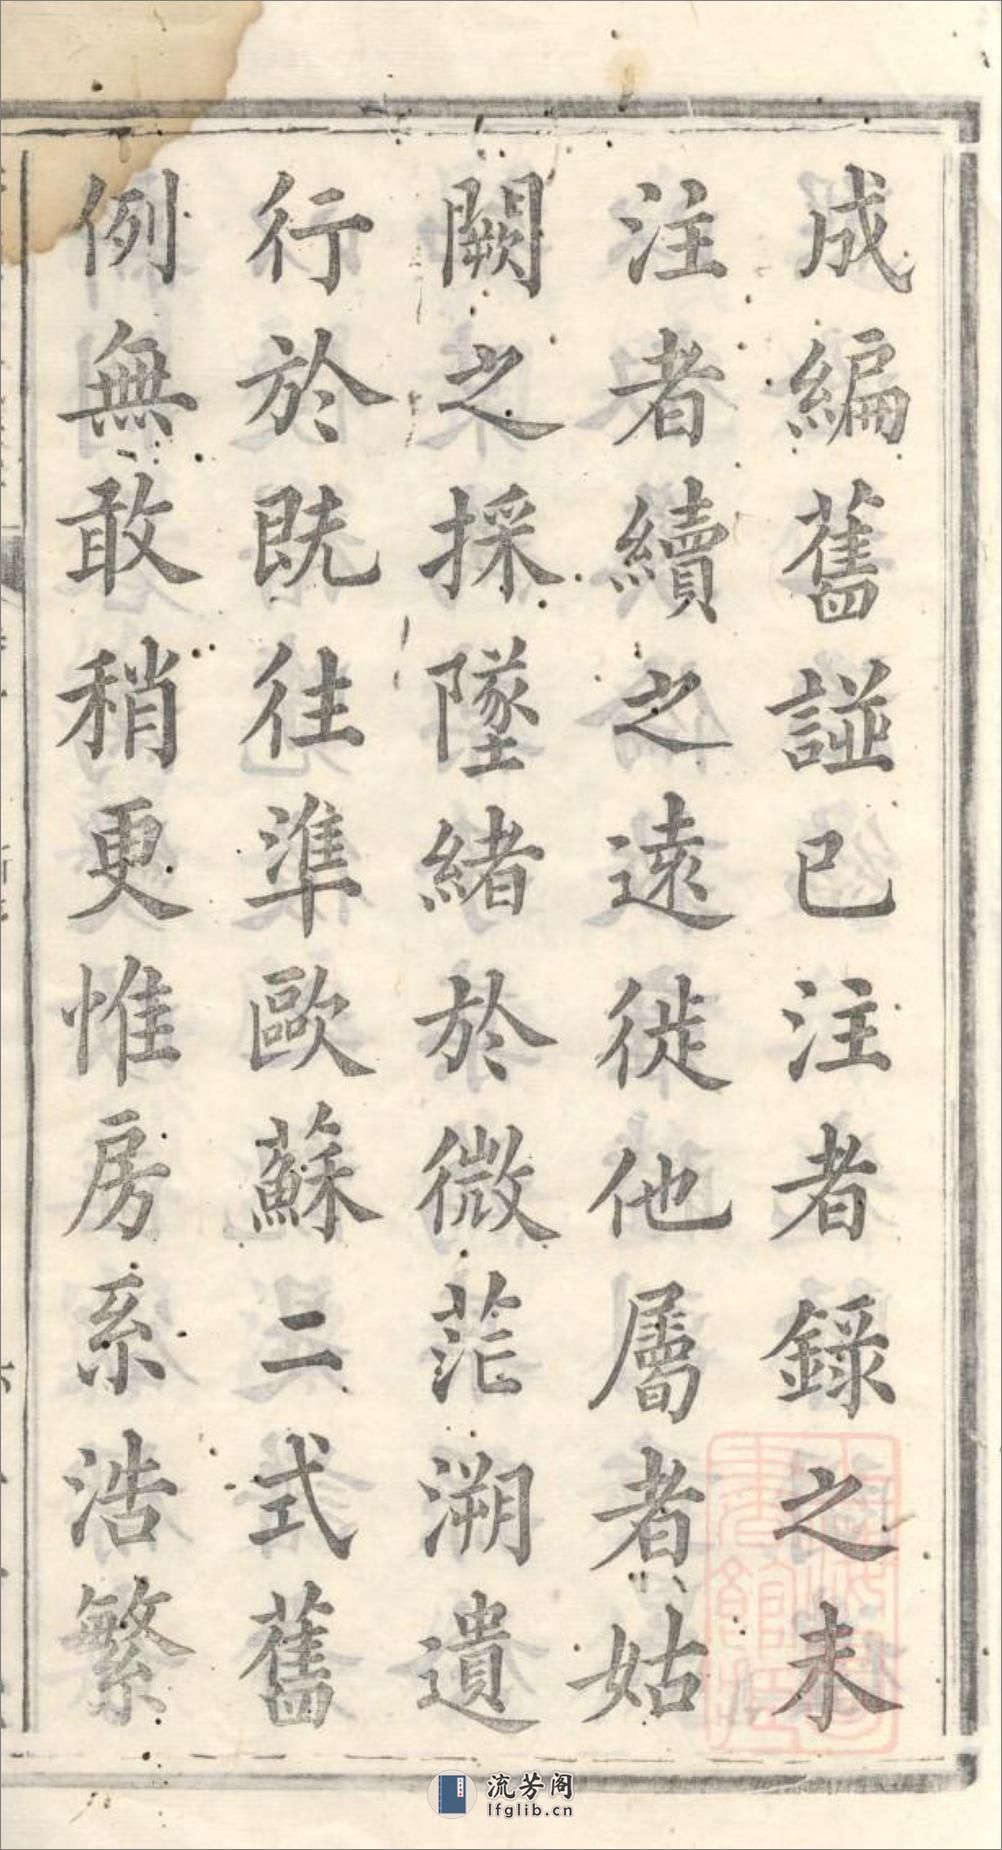 成編舊諩已注者錄之未
注者續之遠徙他屬者姑
闕之採墜緒於微茫溯遺
行於既往準歐蘇二式舊
例無敢稍更惟房系浩繁
流芳阁
lfglib.cn